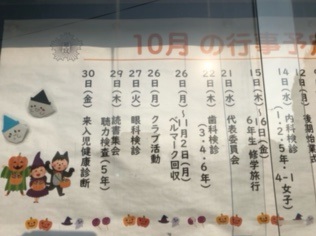 10月の行事予定
12日(月) 後期始業式
14日(水) 内科検診
(1・2・5年・4-女子)
15日(木)～16日(金)
6年生 修学旅行
21日(水) 代表委員会
22日(木) 歯科検診
(3・4・6年)
26日(月)～11月2日(月)
ベルマーク回収
26日(月) クラブ活動
27日(火) 眼科検診
29日(木) 読書集会
聴力検査(5年)
30日(金) 来入児健康診断